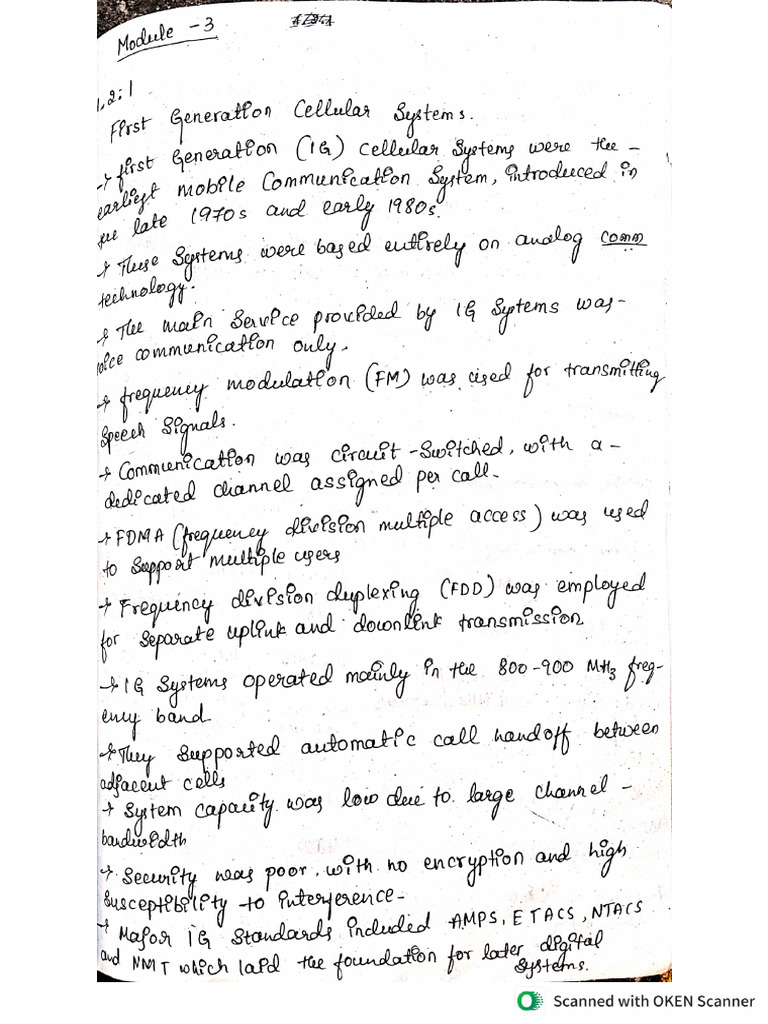 Module - 3
1,2:1
First Generation Cellular Systems.
→ first Generation (1G) cellular Systems were the -
earliest mobile Communication System, introduced in
the late 1970s and early 1980s.
→ These Systems were based entirely on analog comm
technology.
→ The main Service provided by 1G Systems was -
voice communication only.
→ frequency modulation (FM) was used for transmitting
speech signals.
→ Communication was circuit - Switched, with a -
dedicated channel assigned per call.
→ FDMA (frequency division multiple access) was used
to support multiple users
→ Frequency division duplexing (FDD) was employed
for separate uplink and downlink transmission.
→ 1G Systems operated mainly in the 800-900 MHz freq-
ency band
→ They Supported automatic call handoff between
adjacent cells
→ System capacity was low due to large channel -
bandwidth
→ Security was poor, with no encryption and high
susceptibility to interference -
→ Major 1G Standards included AMPS, ETACS, NTACS
and NMT which laid the foundation for later digital
systems.
Scanned with OKEN Scanner